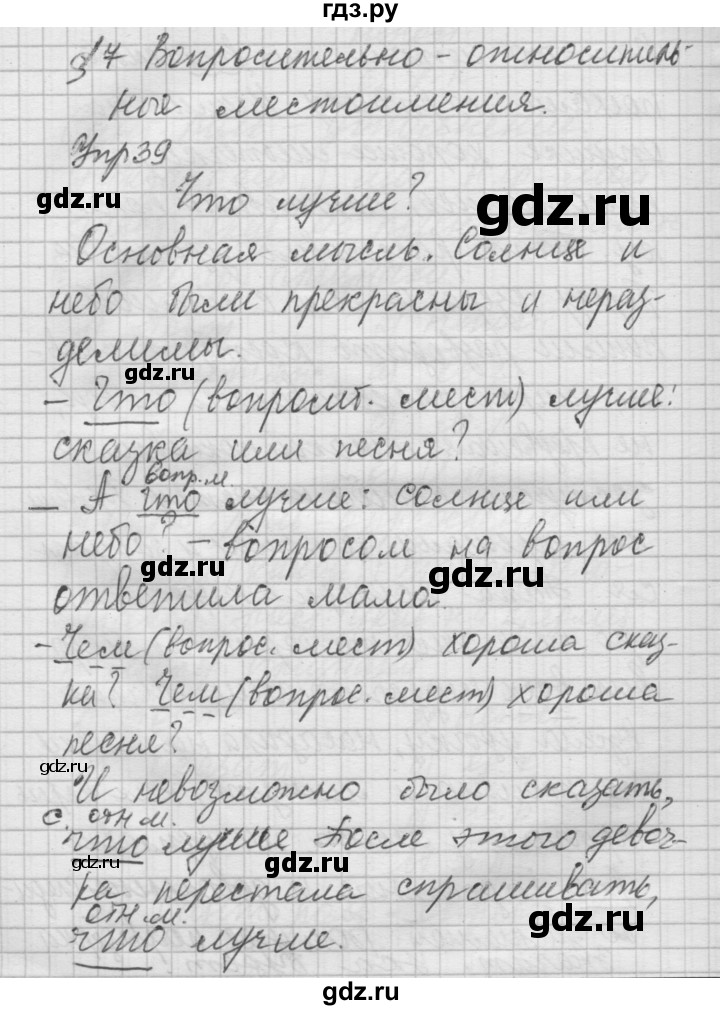 гдз.ру
§17 Вопросительно-относитель-
ные местоимения.
Упр 39
gdz.ru
gdz.ru
Что лучше?
Основная мысль. Солнце и
небо были прекрасны и нераз-
делимы.
gdz.ru
gdz.ru
- Что (вопросит. мест) лучше:
сказка или песня?
вопр. м.
- А что лучше: солнце или
небо? - вопросом на вопрос
gdz.ru
gdz.ru
ответила мама.
- Чем (вопрос. мест) хороша сказ-
ка? Чем (вопрос. мест) хороша
gdz.ru
gdz.ru
песня?
gdz.ru
И невозможно было сказать,
с. отн м.
что лучше После этого девоч-
gdz.ru
gdz.ru
ка перестала спрашивать,
отн. м.
gdz.ru
gdz.ru
что лучше.
gdz.ru